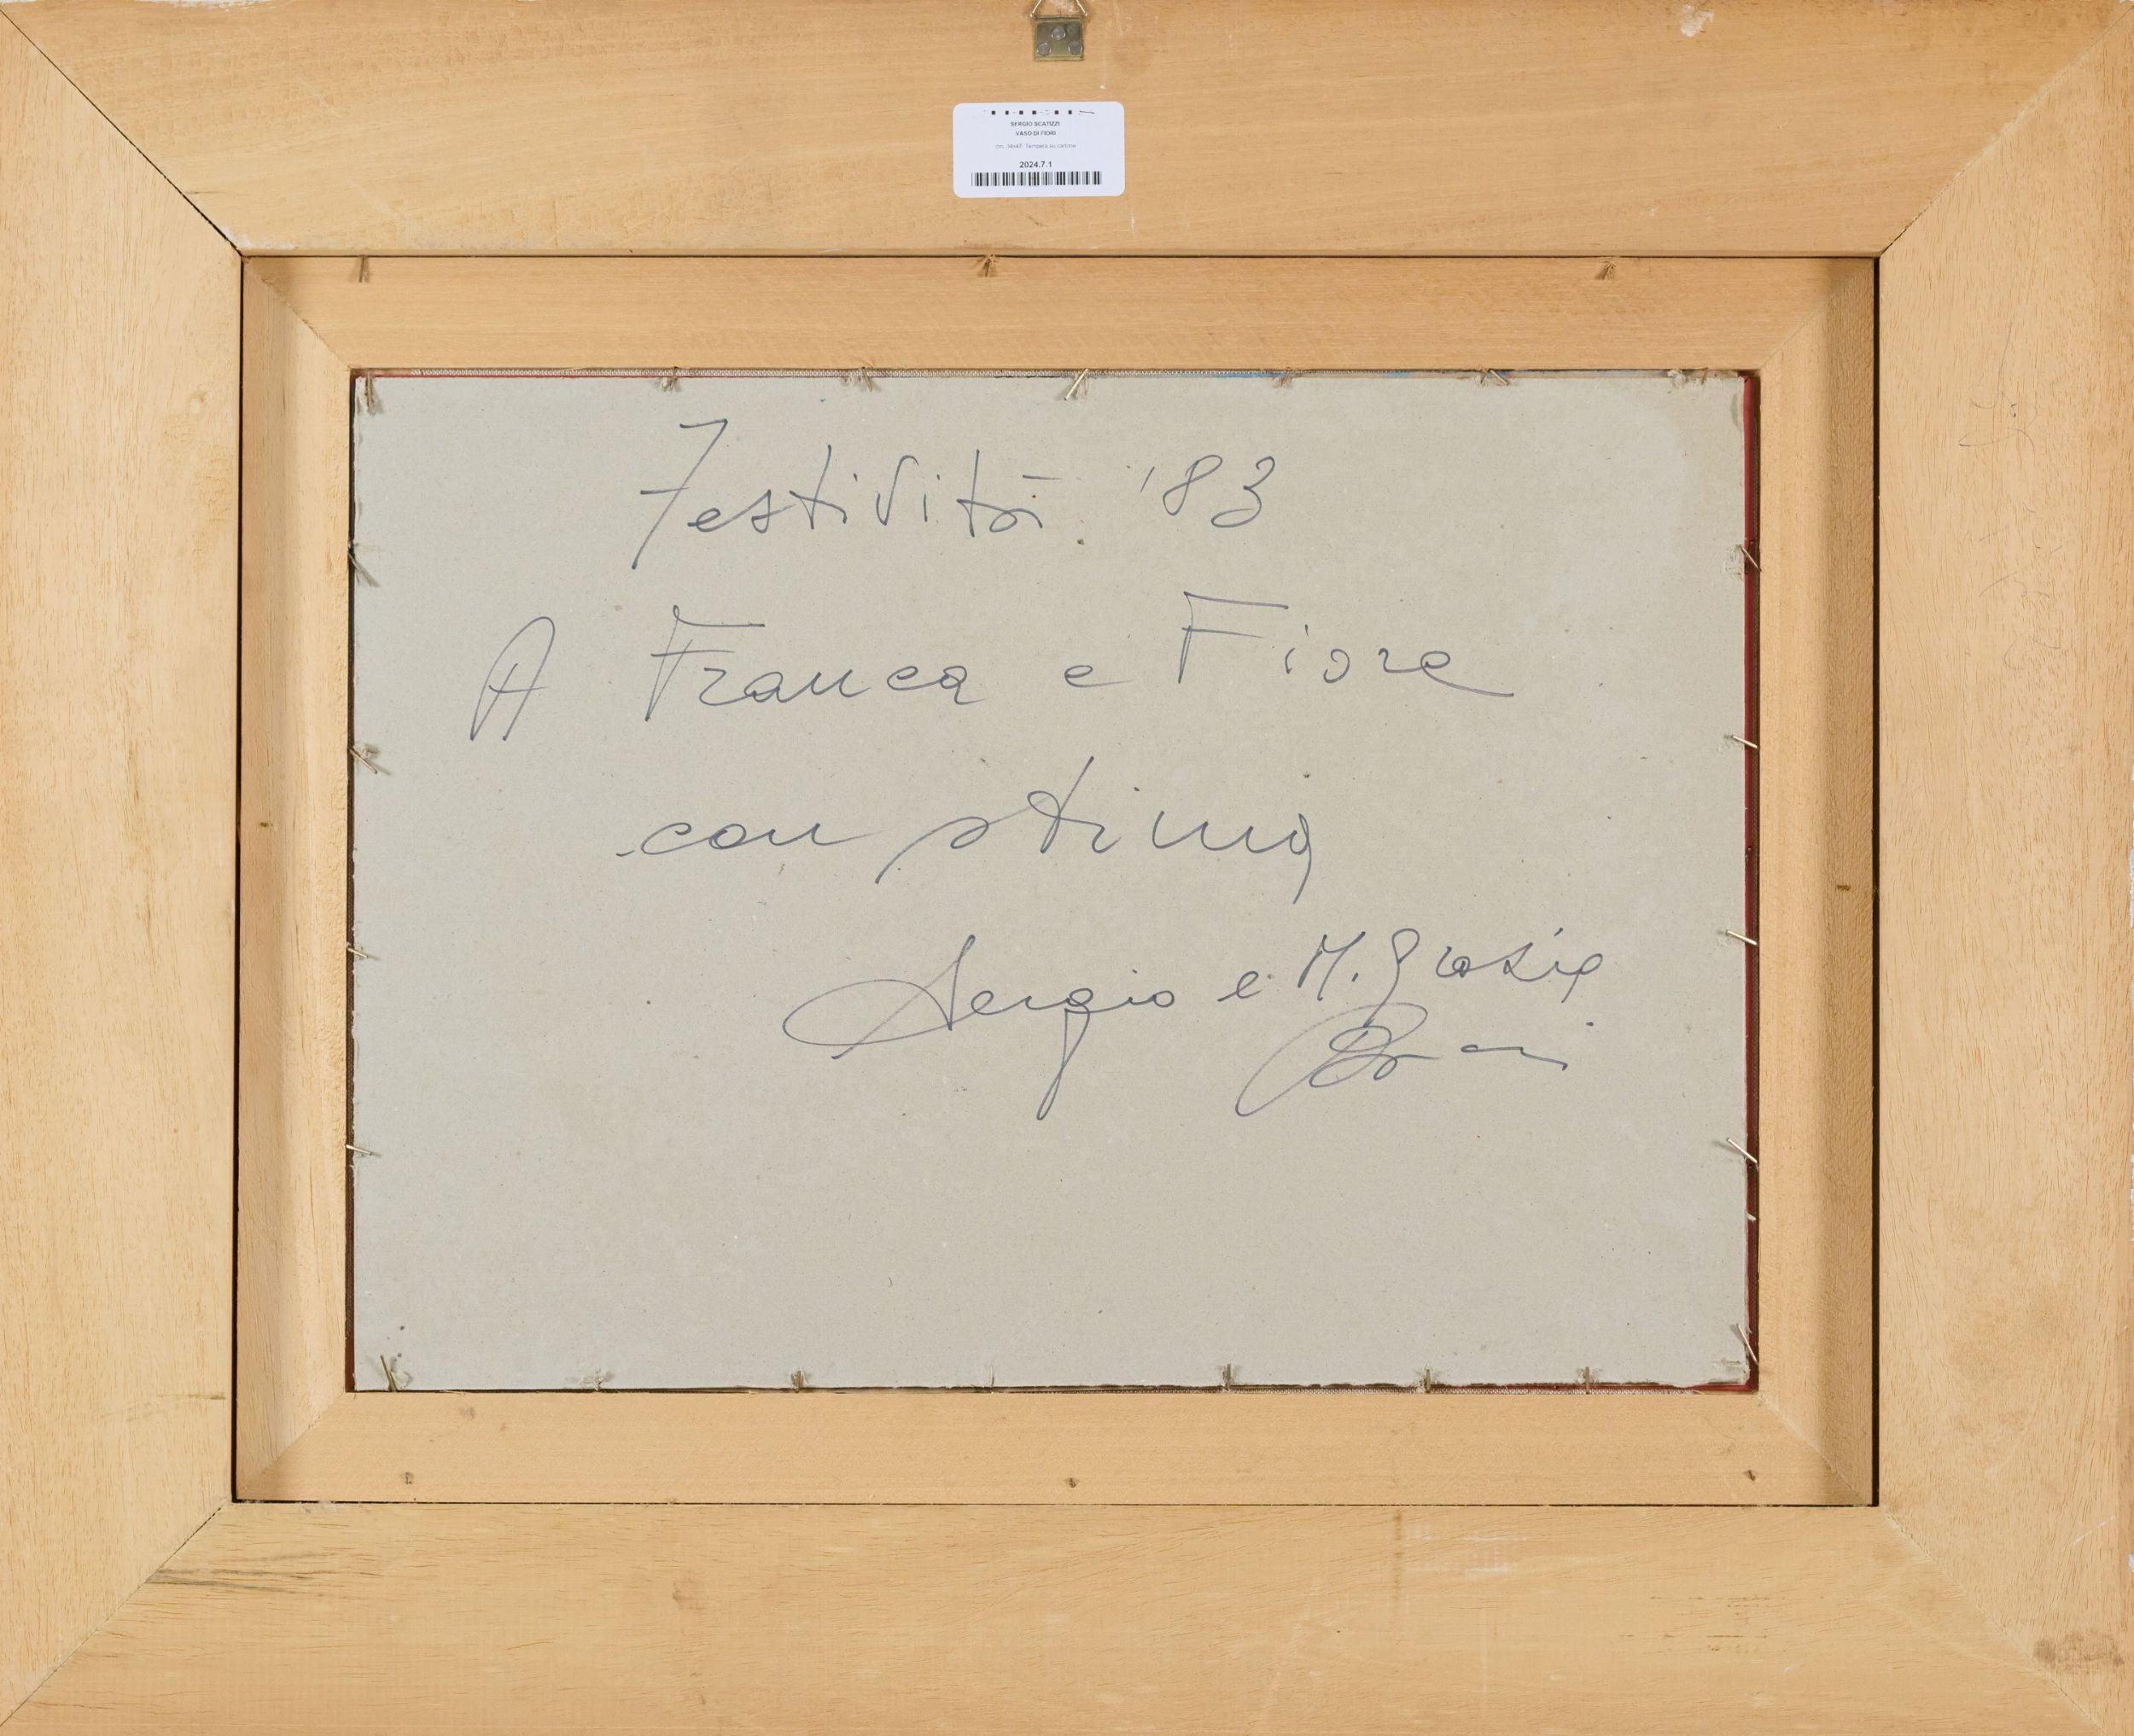 SERGIO SCATIZZI
VASO DI FIORI
cm. 34x47 Tempera su cartone
2024.7.1
Festività '83
A Franca e Fiore
con stima
Sergio e M. Grazia